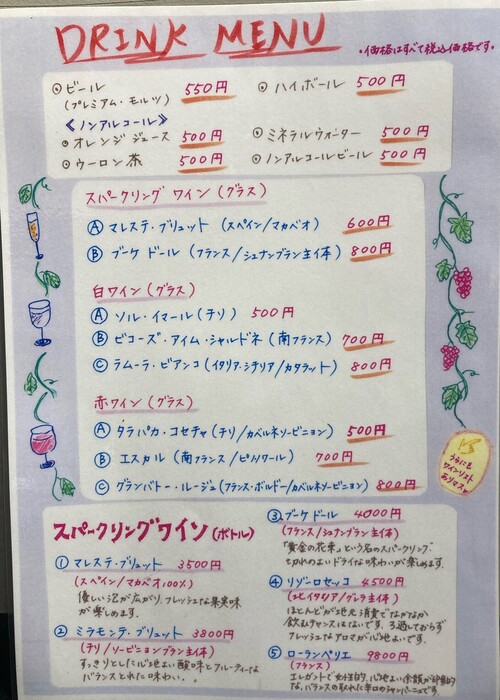 DRINK MENU
・価格はすべて税込価格です・
⊙ビール 550円
(プレミアム・モルツ)
⊙ハイボール 500円
《ノンアルコール》
⊙オレンジジュース 500円
⊙ミネラルウォーター 500円
⊙ウーロン茶 500円
⊙ノンアルコールビール 500円
スパークリングワイン(グラス)
Ⓐ マレステ・ブリュット (スペイン/マカベオ) 600円
Ⓑ ブーケ ドール (フランス/シュナンブラン主体) 800円
白ワイン(グラス)
Ⓐ ソル・イマール(チリ) 500円
Ⓑ ビコーズ・アイム・シャルドネ (南フランス) 700円
Ⓒ ラムーラ・ビアンコ(イタリア・シチリア/カタラット) 800円
赤ワイン(グラス)
Ⓐ タラパカ・コセチャ(チリ/カベルネソービニョン) 500円
Ⓑ エスカル (南フランス/ピノノワール) 700円
Ⓒ グランバトー・ルージュ(フランス・ボルドー/カベルネソービニョン) 800円
うらにも
ワインリスト
ありマス
スパークリングワイン(ボトル)
① マレステ・ブリュット 3500円
(スペイン/マカベオ100%)
優しい泡が広がり、フレッシュな果実味
が楽しめます。
② ミラモンテ・ブリュット 3800円
(チリ/ソービニヨンブラン主体)
すっきりとした心地よい酸味とフルーティーな
バランスとれた味わい。.
③ブーケ ドール 4000円
(フランス/シュナンブラン主体)
「黄金の花束」という名のスパークリング.
きれのよいドライな味わいが楽しめます。
④ リゾーロセッコ 4500円
(北イタリア/グレラ主体)
ほとんどが地元消費でなかなか
飲むチャンスはないです。ろ過してあらず
フレッシュなアロマが心地よいです。
⑤ ローランペリエ 9800円
(フランス)
エレガントで女性的、心地よい余韻が印象的
な、バランスの取れた辛口のシャンパーニュです。